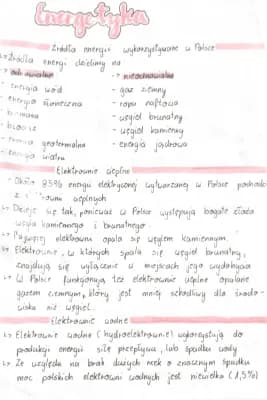 Energetyka
Źródła energii wykorzystywane w Polsce
↳ Źródła energii dzielimy na
→ odnawialne → nieodnawialne
- energia wód - gaz ziemny
- energia słoneczna - ropa naftowa
- biomasa - węgiel brunatny
- biogaz - węgiel kamienny
- energia geotermalna - energia jądrowa
- energia wiatru
Elektrownie cieplne
↳ Około 95% energii elektrycznej wytwarzanej w Polsce pochodzi
z elektrowni cieplnych
↳ Dzieje się tak, ponieważ w Polsce występują bogate złoża
węgla kamiennego i brunatnego
↳ Najwięcej elektrowni opala się węglem kamiennym.
↳ Elektrownie, w których spala się węgiel brunatny,
znajdują się wyłącznie w miejscach jego wydobycia
↳ W Polsce funkcjonują też elektrownie cieplne opalane
gazem ziemnym, który jest mniej szkodliwy dla środo-
wiska niż węgiel.
Elektrownie wodne
↳ Elektrownie wodne (hydroelektrownie) wykorzystują do
produkcji energii siłę przepływu, lub spadku wody
↳ Ze względu na brak dużych rzek o znacznym spadku
moc polskich elektrowni wodnych jest niewielka (1,5%)